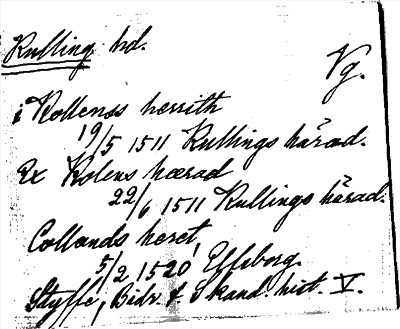 Kulling hd.
Vg.
i Kollenss herrith
19/5 1511 Kullings härad.
Ex Kolens hærad
22/6 1511 Kullings härad.
Collands heret,
5/2 1520, Elfsborg.
Styffe, Bidr. t. Skand. hist. V.